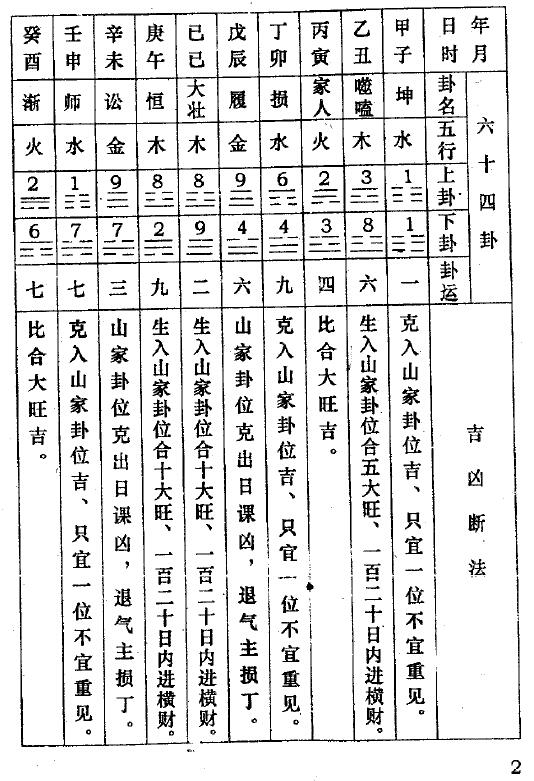 年月日时
六十四卦
卦名
五行
上卦
下卦
卦运
吉凶断法
甲子
坤
水
1
1
一
克入山家卦位吉、只宜一位不宜重见。
乙丑
噬嗑
木
3
8
六
生入山家卦位合五大旺、一百二十日内进横财。
丙寅
家人
火
2
3
四
比合大旺吉。
丁卯
损
水
6
4
九
克入山家卦位吉、只宜一位不宜重见。
戊辰
履
金
9
4
六
山家卦位克出日课凶，退气主损丁。
已巳
大壮
木
8
9
二
生入山家卦位合十大旺、一百二十日内进横财。
庚午
恒
木
8
2
九
生入山家卦位合十大旺、一百二十日内进横财。
辛未
讼
金
9
7
三
山家卦位克出日课凶，退气主损丁。
壬申
师
水
1
7
七
克入山家卦位吉、只宜一位不宜重见。
癸酉
渐
火
2
6
七
比合大旺吉。
2